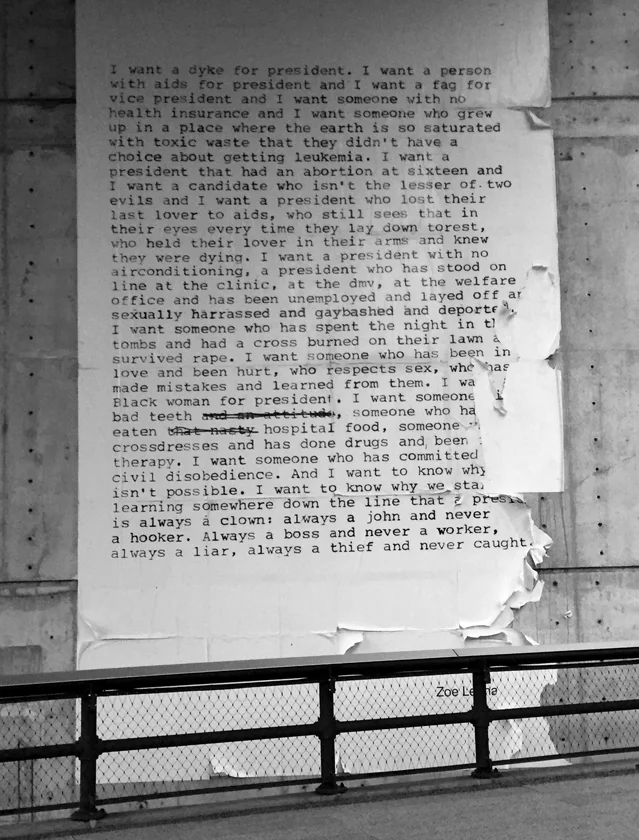 I want a dyke for president. I want a person
with aids for president and I want a fag for
vice president and I want someone with no
health insurance and I want someone who grew
up in a place where the earth is so saturated
with toxic waste that they didn't have a
choice about getting leukemia. I want a
president that had an abortion at sixteen and
I want a candidate who isn't the lesser of two
evils and I want a president who lost their
last lover to aids, who still sees that in
their eyes every time they lay down torest,
who held their lover in their arms and knew
they were dying. I want a president with no
airconditioning, a president who has stood on
line at the clinic, at the dmv, at the welfare
office and has been unemployed and layed off
sexually harrassed and gaybashed and
I want someone who has spent the night in
tombs and had a cross burned on their lawn
survived rape. I want someone who has been in
love and been hurt, who respects sex, who has
made mistakes and learned from them. I
Black woman for president. I want someone
bad teeth and an attitude, someone who
eaten that nasty hospital food, someone
crossdresses and has done drugs and been
therapy. I want someone who has committed
civil disobedience. And I want to know why
isn't possible. I want to know why we
learning somewhere down the line that a
is always a clown: always a john and never
a hooker. Always a boss and never a worker,
always a liar, always a thief and never caught.
Zoe